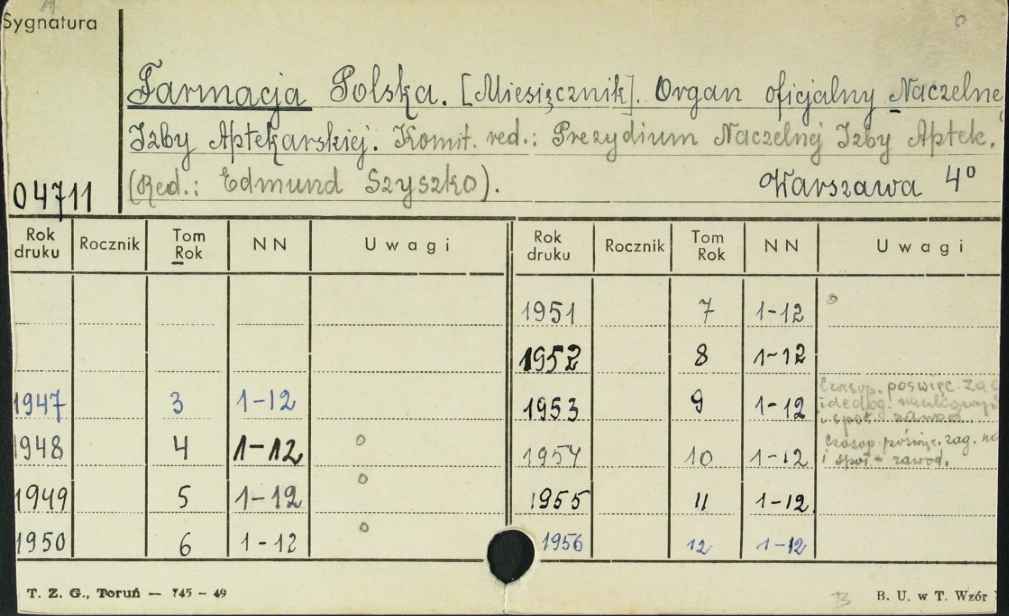 Sygnatura
Farmacja Polska. [Miesięcznik]. Organ oficjalny Naczelne
Izby Aptekarskiej. Komit. red.: Prezydium Naczelnej Izby Aptek.
(Red.: Edmund Szyszko). Warszawa 4º
04711
Rok druku Rocznik Tom Rok NN Uwagi Rok druku Rocznik Tom Rok NN Uwagi
1951 7 1-12
1952 8 1-12
1947 3 1-12 1953 9 1-12 Czasop. poświęc. zag
ideolog.
i społ. zawod.
1948 4 1-12 1954 10 1-12 Czasop. poświęc. zag.
i społ.-zawod.
1949 5 1-12 1955 11 1-12
1950 6 1-12 1956 12 1-12
T. Z. G., Toruń — 745 - 49 B. U. w T. Wzór